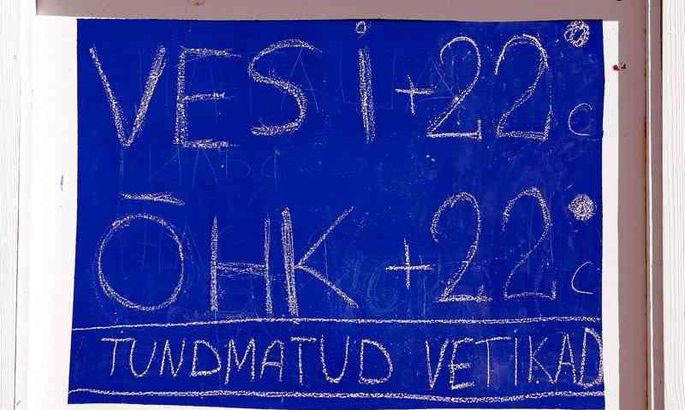 VESi +22°C
ÕHK +22°C
TUNDMATUD VETIKAD